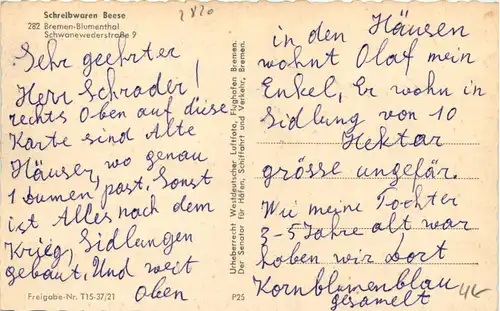 Schreibwaren Beese
282 Bremen-Blumenthal
Schwanewederstraße 9
2820
Sehr geehrter
Herr Schrader!
rechts Oben auf diese
Karte sind Alte
Häuser, wo genau
1 Daumen past, Sonst
ist Alles nach dem
Krieg, Sidlungen
gebaut. Und weit
Oben
Freigabe-Nr. T15-37/21
P25
Urheberrecht Westdeutscher Luftfoto, Flughafen Bremen.
Der Senator für Häfen, Schiffahrt und Verkehr, Bremen.
in den Häusen
wohnt Olaf mein
Enkel, Er wohn in
Sidlung von 10
Hektar
grösse ungefär.
Wie meine Tochter
3-5 Jahre alt war
haben wir Dort
Kornblumenblau
gesamelt